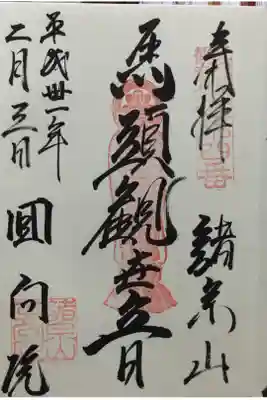 奉拝　諸宗山
馬頭觀世音
平成丗一年
二月三日
回向院